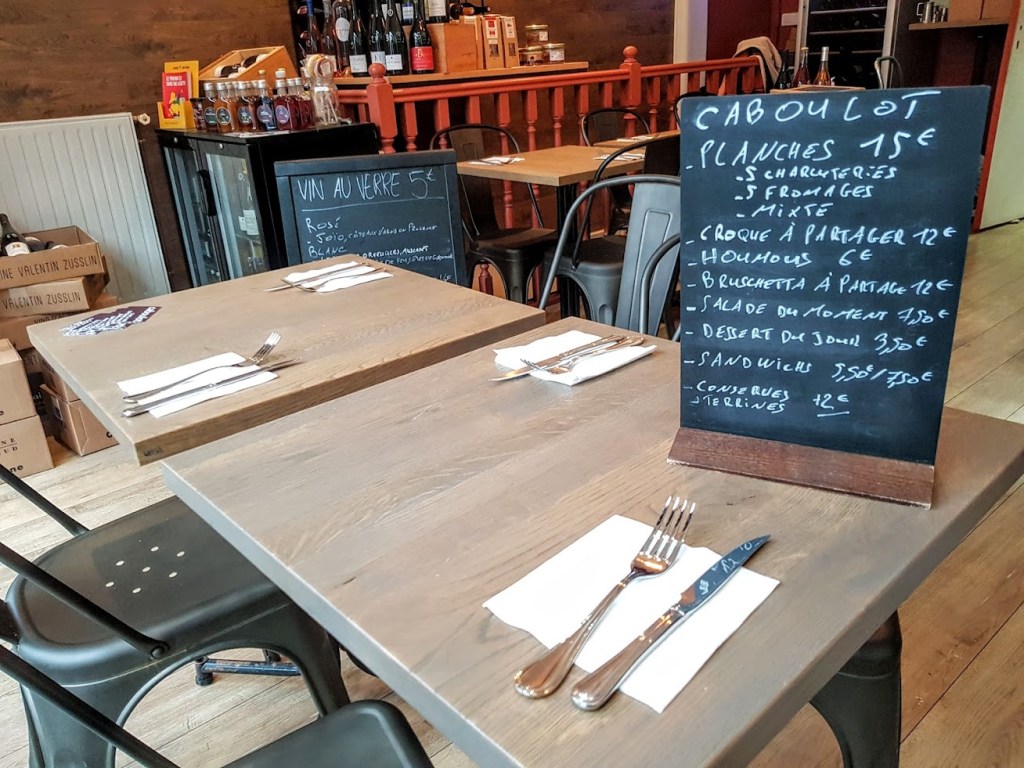 CABOULOT
- PLANCHES 15€
- 5 CHARCUTERIES
- 5 FROMAGES
- MIXTE
- CROQUE À PARTAGER 12€
- HOUMOUS 6€
- BRUSCHETTA À PARTAGE 12€
- SALADE DU MOMENT 7,50€
- DESSERT DU JOUR 3,50€
- SANDWICHS 5,50€/7,50€
- CONSERVES
TERRINES 12€
VIN AU VERRE 5€
ROSÉ
BLANC
VALENTIN ZUSSLIN
VALENTIN ZUSSLIN